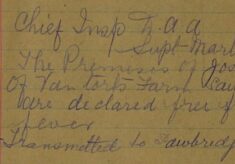 Chief Insp
Supt. Marl
The Premises of Jos
Of Van Torts Farm
are declared free f
fever
Transmitted to Fawbredf